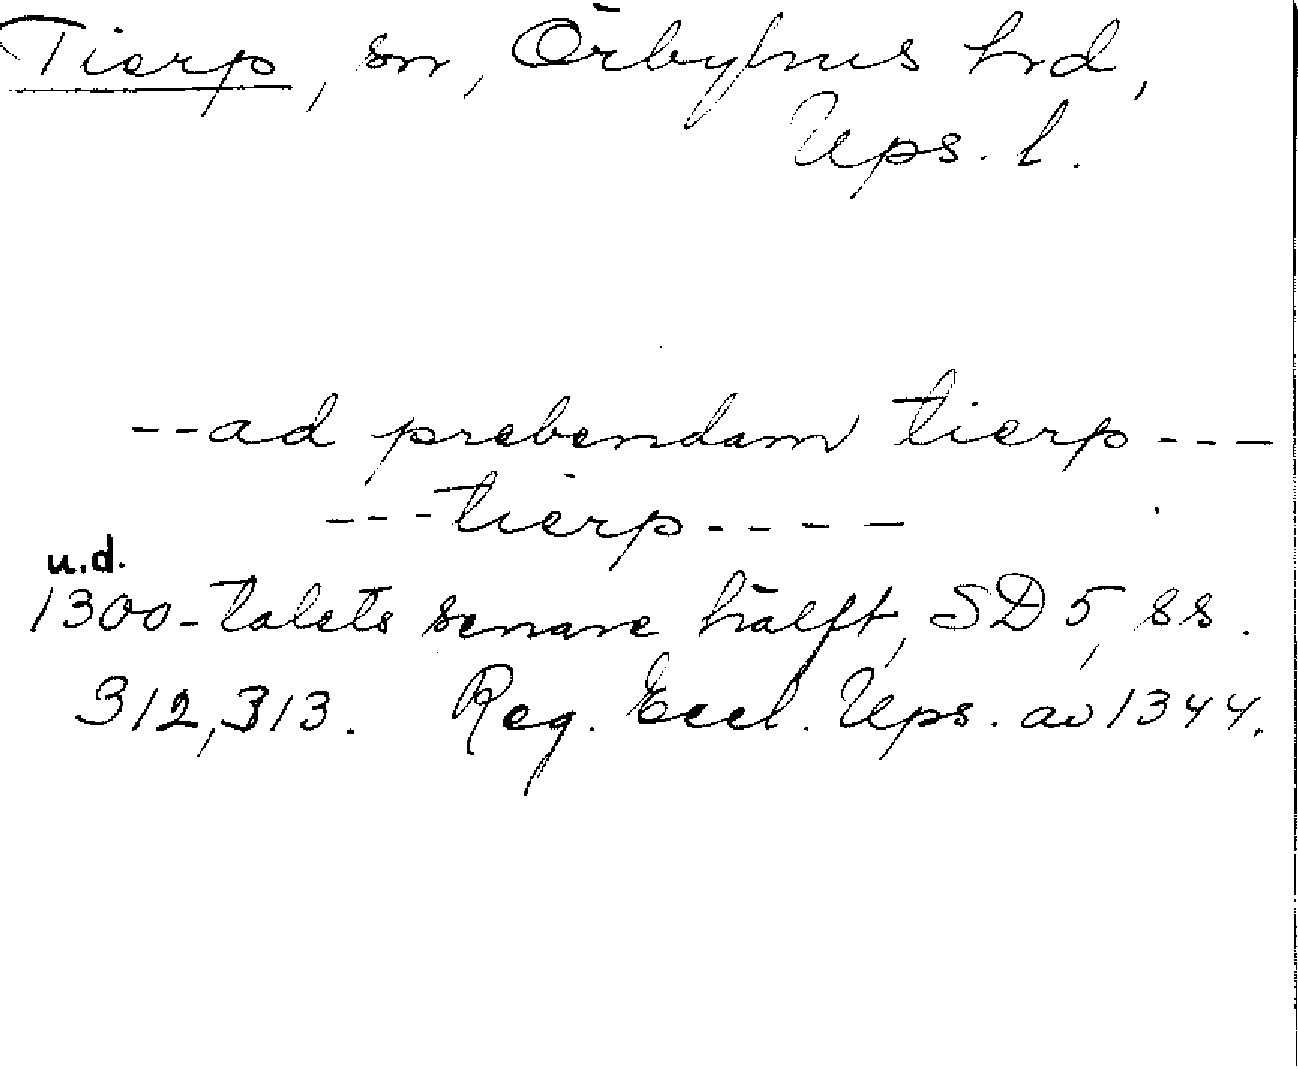 Tierp, sn, Örbyhus hrd,
Ups. l.
--ad prebendam tierp---
---tierp----
u.d.
1300-talets senare hälft, SD 5, ss.
312, 313. Reg. Eccl. Ups. av 1344.